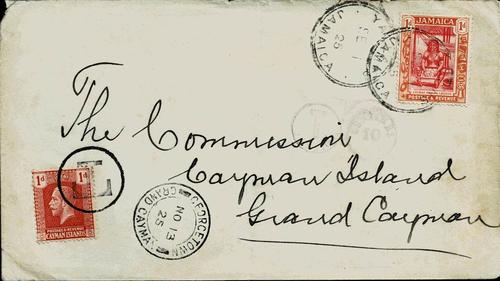 JAMAICA
1d 1d
POSTAGE & REVENUE
JAMAICA
25
JAMAICA
The Commission
Cayman Island
Grand Cayman
1d 1d
POSTAGE & REVENUE
CAYMAN ISLANDS
T
GEORGETOWN
NO 13
25
GRAND CAYMAN
10